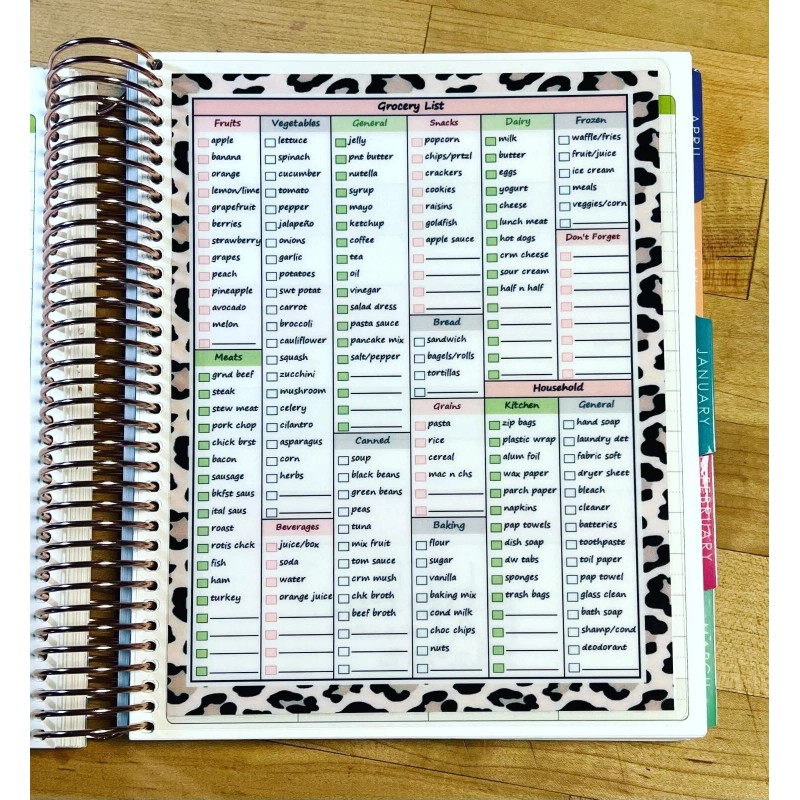 Grocery List
Fruits
apple
banana
orange
lemon/lime
grapefruit
berries
strawberry
grapes
peach
pineapple
avocado
melon
Meats
grnd beef
steak
stew meat
pork chop
chick brst
bacon
sausage
bkfst saus
ital saus
roast
rotis chck
fish
ham
turkey
Vegetables
lettuce
spinach
cucumber
tomato
pepper
jalapeño
onions
garlic
potatoes
swt potat
carrot
broccoli
cauliflower
squash
zucchini
mushroom
celery
cilantro
asparagus
corn
herbs
Beverages
juice/box
soda
water
orange juice
General
jelly
pnt butter
nutella
syrup
mayo
ketchup
coffee
tea
oil
vinegar
salad dress
pasta sauce
pancake mix
salt/pepper
Canned
soup
black beans
green beans
peas
tuna
mix fruit
tom sauce
crm mush
chk broth
beef broth
Snacks
popcorn
chips/prtzl
crackers
cookies
raisins
goldfish
apple sauce
Bread
sandwich
bagels/rolls
tortillas
Grains
pasta
rice
cereal
mac n chs
Baking
flour
sugar
vanilla
baking mix
cond milk
choc chips
nuts
Dairy
milk
butter
eggs
yogurt
cheese
lunch meat
hot dogs
crm cheese
sour cream
half n half
Frozen
waffle/fries
fruit/juice
ice cream
meals
veggies/corn
Don't Forget
Household
Kitchen
zip bags
plastic wrap
alum foil
wax paper
parch paper
napkins
pap towels
dish soap
dw tabs
sponges
trash bags
General
hand soap
laundry det
fabric soft
dryer sheet
bleach
cleaner
batteries
toothpaste
toil paper
pap towel
glass clean
bath soap
shamp/cond
deodorant
APRIL
JANUARY
FEBRUARY
MARCH